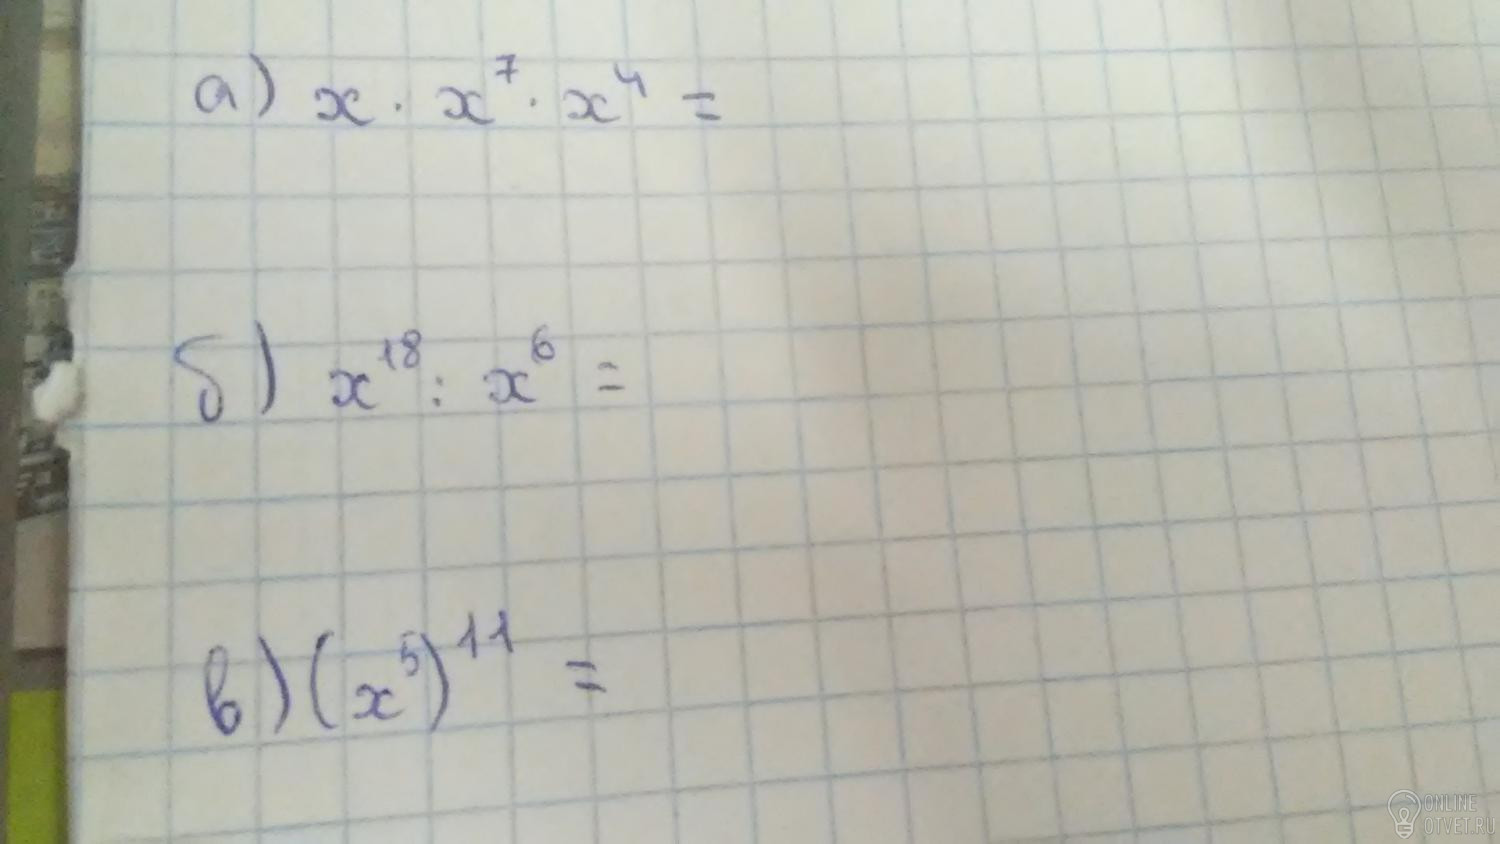 а) x · x⁷ · x⁴ =
б) x¹⁸ : x⁶ =
в) (x⁵)¹¹ =
ONLINE
OTVET.RU